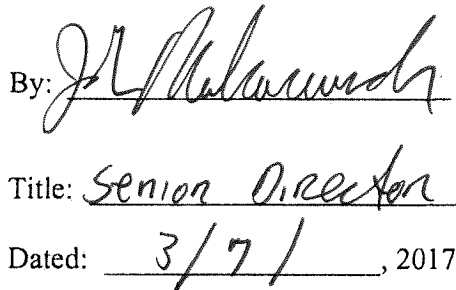 By:
Title: Senior Director
Dated: 3/7/, 2017